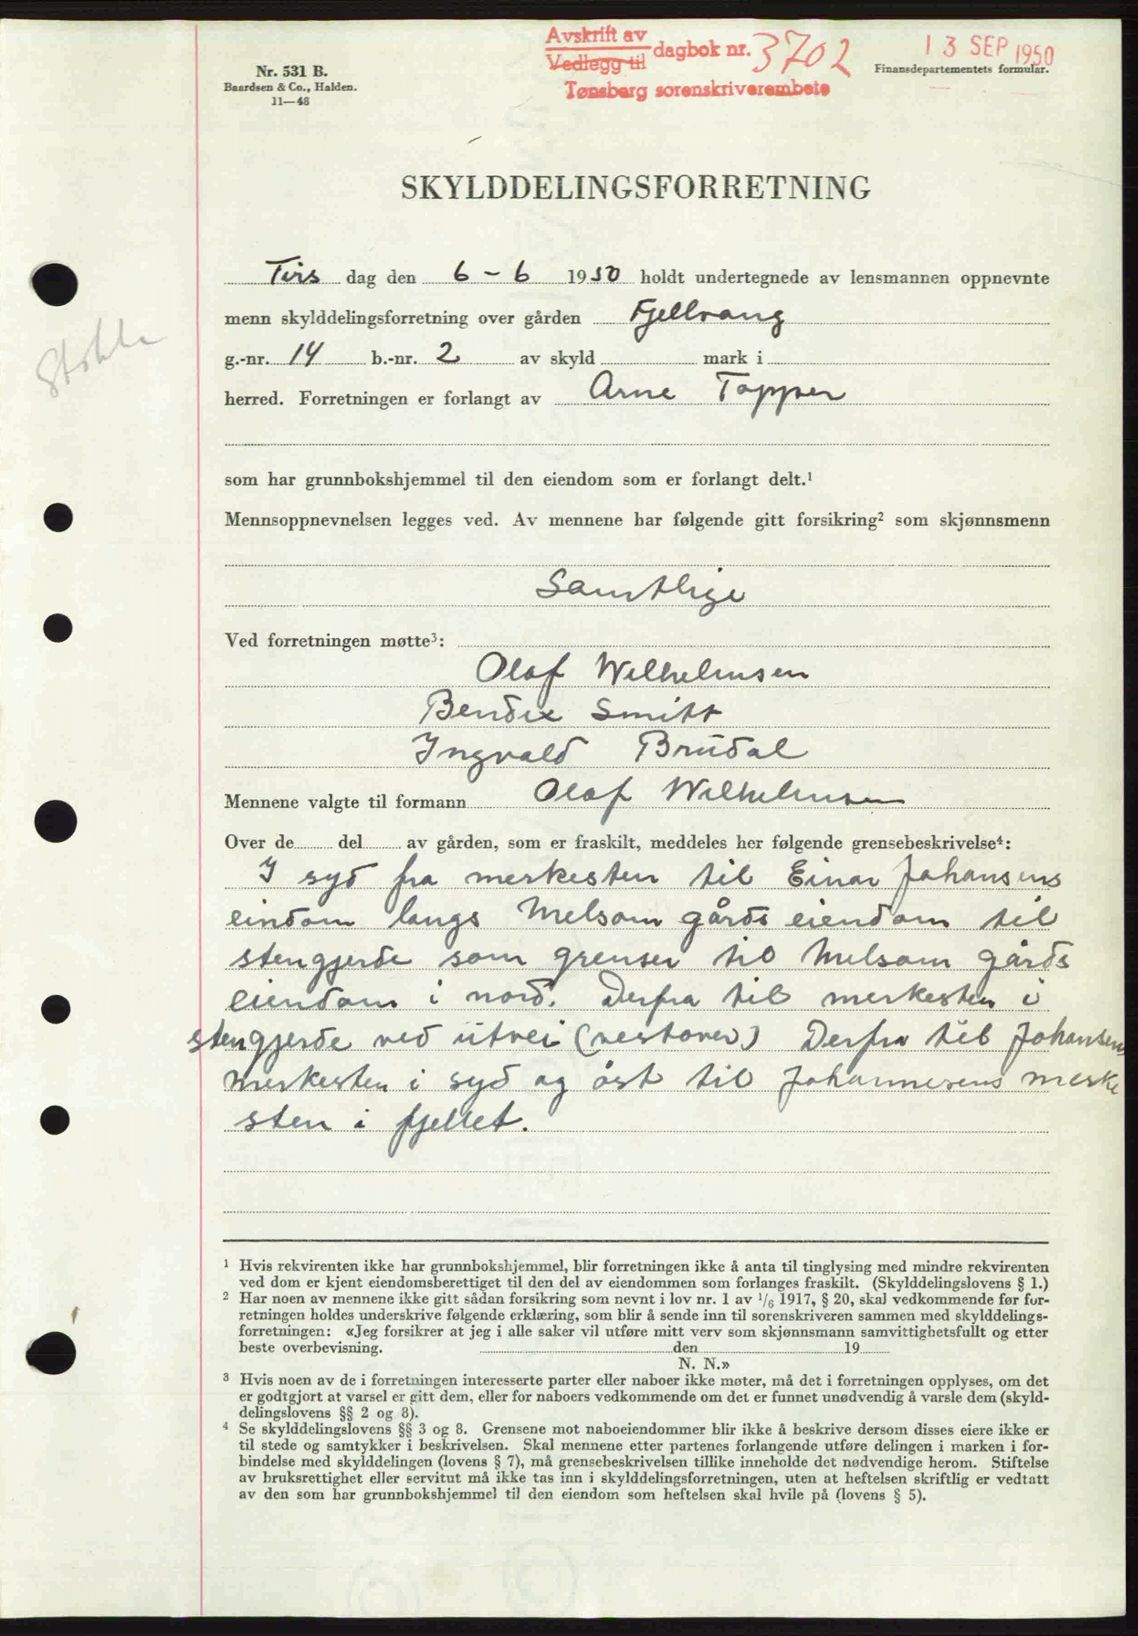 Avskrift av
Vedlegg til
dagbok nr. 3702
Tønsberg sorenskriverembete
13 SEP 1950
Finansdepartementets formular.
Nr. 531 B.
Baardsen & Co., Halden.
11—48
SKYLDDELINGSFORRETNING
Tirs dag den 6 – 6 1950 holdt undertegnede av lensmannen oppnevnte
menn skylddelingsforretning over gården Fjellvang
g.-nr. 14 b.-nr. 2 av skyld mark i
Stokke
herred. Forretningen er forlangt av Arne Topper
som har grunnbokshjemmel til den eiendom som er forlangt delt.¹
Mennsoppnevnelsen legges ved. Av mennene har følgende gitt forsikring² som skjønnsmenn
Samtlige
Ved forretningen møtte³:
Olaf Wilhelmsen
Bendix Smitt
Ingvald Brudal
Mennene valgte til formann Olaf Wilhelmsen
Over de del av gården, som er fraskilt, meddeles her følgende grensebeskrivelse⁴:
I syd fra merkesten til Einar Johansens
eindom langs Melsom gårds eiendom til
stengjerde som grenser til Melsom gårds
eiendom i nord. Derfra til merkesten i
stengjerde ved utvei (vestover) Derfra til Johansens
merkesten i syd og øst til Johannesens merke
sten i fjellet.
¹ Hvis rekvirenten ikke har grunnbokshjemmel, blir forretningen ikke å anta til tinglysing med mindre rekvirenten
ved dom er kjent eiendomsberettiget til den del av eiendommen som forlanges fraskilt. (Skylddelingslovens § 1.)
² Har noen av mennene ikke gitt sådan forsikring som nevnt i lov nr. 1 av ¹/₆ 1917, § 20, skal vedkommende før for-
retningen holdes underskrive følgende erklæring, som blir å sende inn til sorenskriveren sammen med skylddelings-
forretningen: «Jeg forsikrer at jeg i alle saker vil utføre mitt verv som skjønnsmann samvittighetsfullt og etter
beste overbevisning. den 19
N. N.»
³ Hvis noen av de i forretningen interesserte parter eller naboer ikke møter, må det i forretningen opplyses, om det
er godtgjort at varsel er gitt dem, eller for naboers vedkommende om det er funnet unødvendig å varsle dem (skyld-
delingslovens §§ 2 og 8).
⁴ Se skylddelingslovens §§ 3 og 8. Grensene mot naboeiendommer blir ikke å beskrive dersom disses eiere ikke er
til stede og samtykker i beskrivelsen. Skal mennene etter partenes forlangende utføre delingen i marken i for-
bindelse med skylddelingen (lovens § 7), må grensebeskrivelsen tillike inneholde det nødvendige herom. Stiftelse
av bruksrettighet eller servitut må ikke tas inn i skylddelingsforretningen, uten at heftelsen skriftlig er vedtatt
av den som har grunnbokshjemmel til den eiendom som heftelsen skal hvile på (lovens § 5).